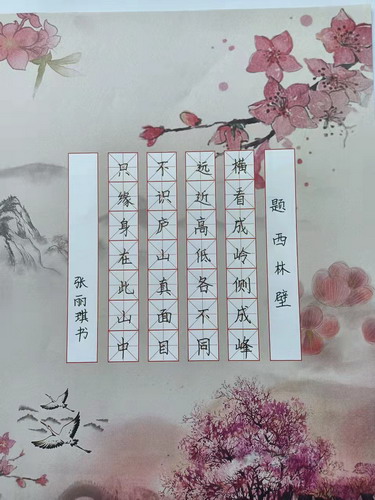 题西林壁
横看成岭侧成峰
远近高低各不同
不识庐山真面目
只缘身在此山中
张丽琪书